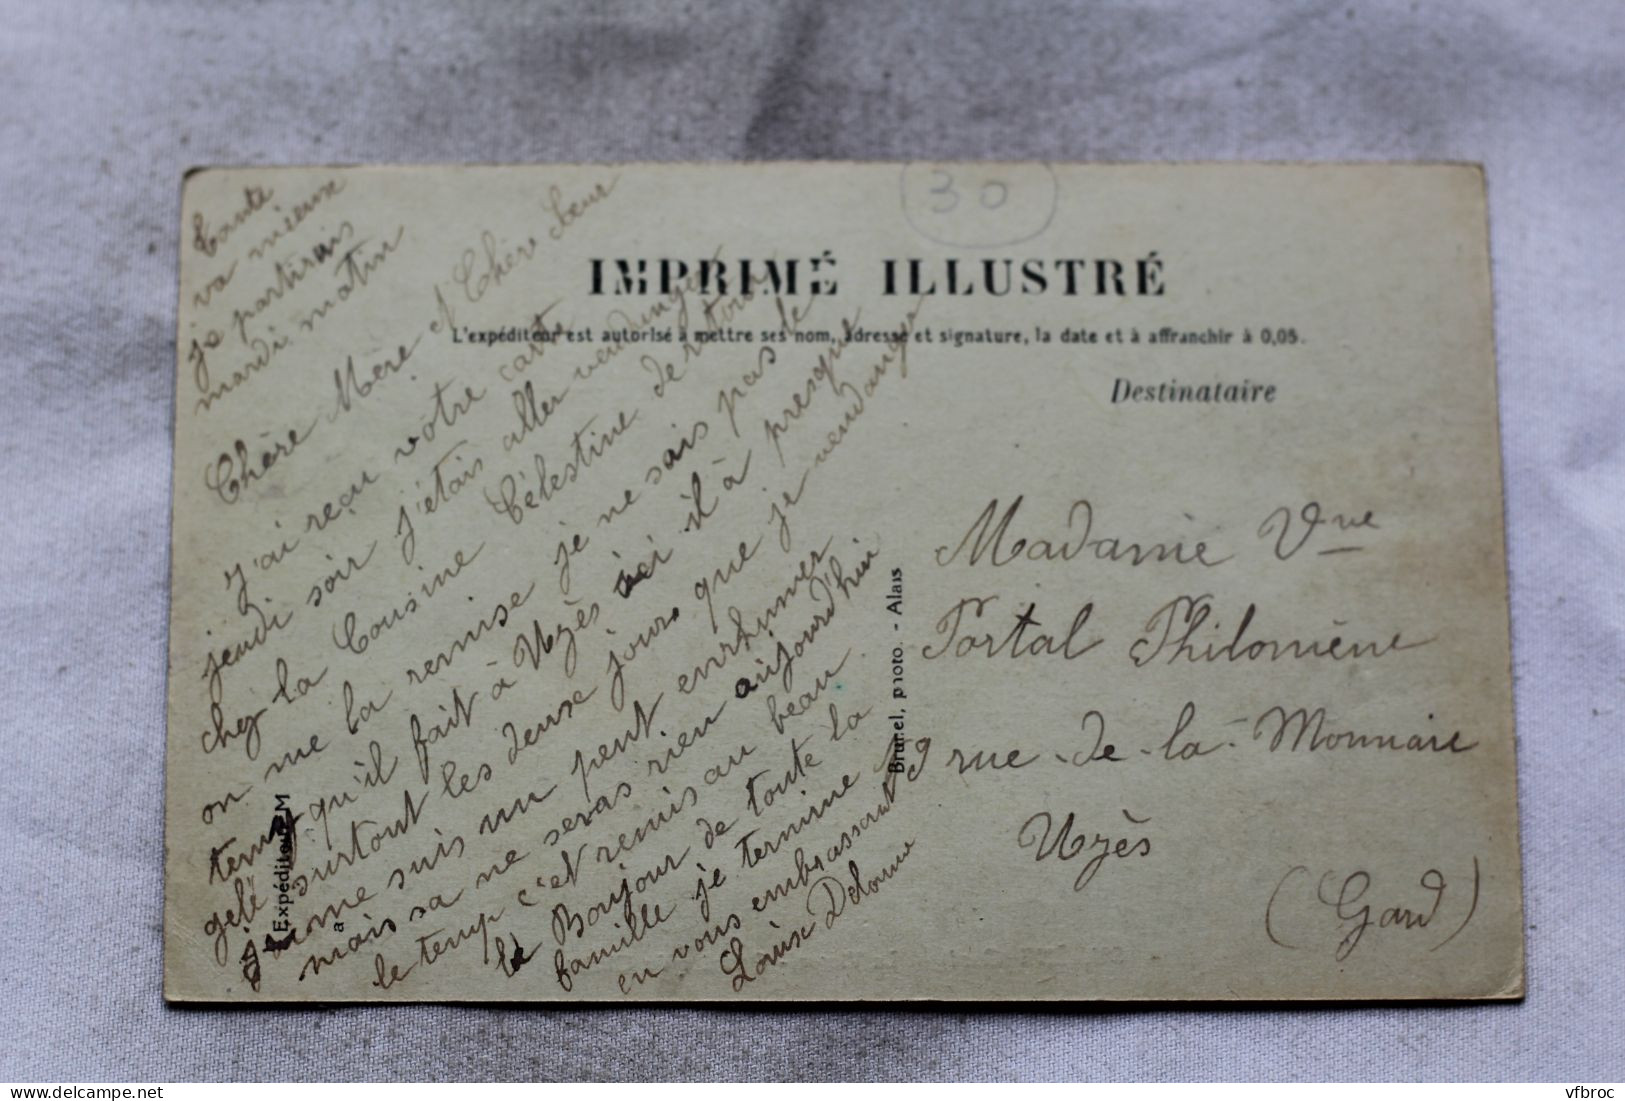 30
IMPRIMÉ ILLUSTRÉ
L'expéditeur est autorisé à mettre ses nom, adresse et signature, la date et à affranchir à 0,05.
Destinataire
tante
va mieux
je partirais
mardi matin
Chère Mère et Chère Sœur
J'ai reçu votre carte
jeudi soir j'étais aller vendanger
chez la Cousine Célestine de retour
on me la remise je ne sais pas le
temp qu'il fait à Uzès ici il à presque
gelé surtout les deux jours que je vendanger
je me suis un peut enrhumer
mais sa ne seras rien aujourd'hui
le temp c'et remis au beau
le Bonjour de toute la
famille je termine
en vous embrassant
Louise Delorme
Expéditeur M
a
Brunel, photo. - Alais
Madame Vve
Portal Philomène
19 rue-de-la-Monnaie
Uzès
(Gard)
vfbroc